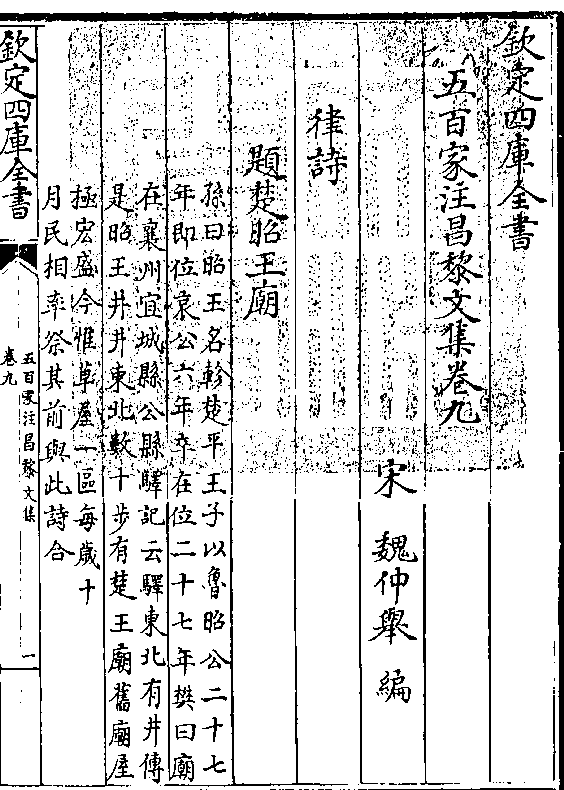 欽定四庫全書
五百家注昌黎文集卷九
宋 魏仲舉 編
律詩
題楚昭王廟
孫曰昭王名軫楚平王子以魯昭公二十七
年即位哀公六年卒在位二十七年樊曰廟
在襄州宜城縣公縣驛記云驛東北有井傳
是昭王井井東北數十步有楚王廟舊廟屋
極宏盛今惟草屋一區每歲十
月民相率祭其前與此詩合
欽定四庫全書
五百家注昌黎文集
卷九
一